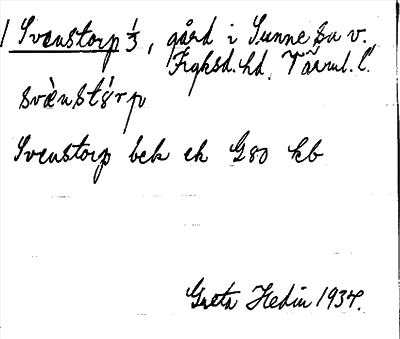 1 Svenstorp 1/3, gård i Sunne sn v.
Fryksd. hd. Värml. l.
svæ̀nstórp
Svenstorp bek ek G80 kb
Greta Hedin 1934.